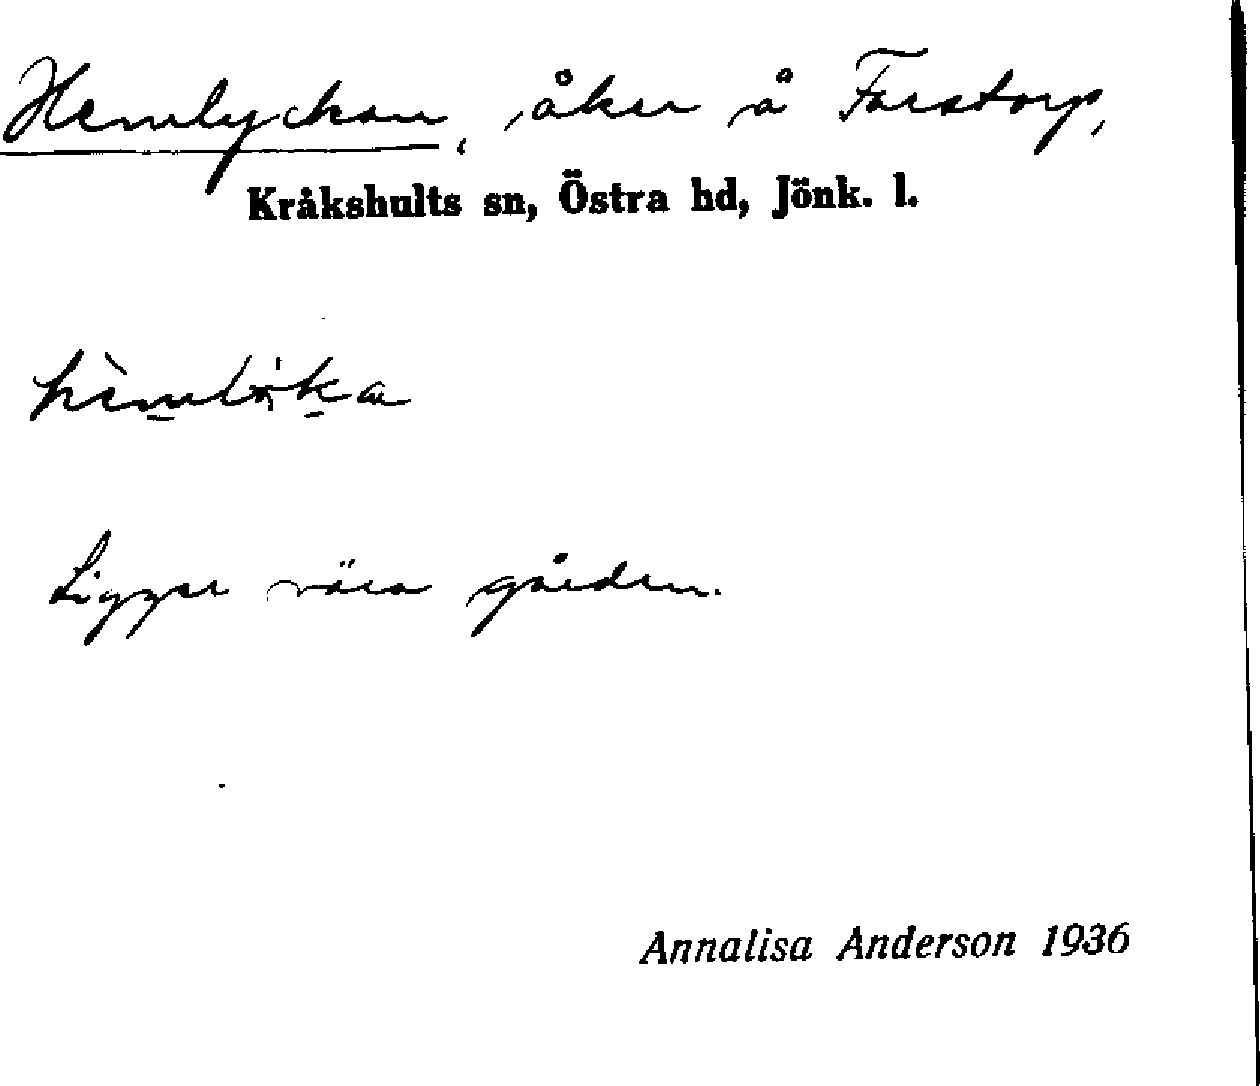 Hemlyckan, åker å Farstorp,
Kråkshults sn, Östra hd, Jönk. l.
Ligger nära gården.
Annalisa Anderson 1936